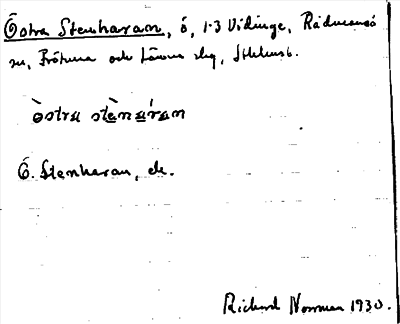 Östra Stenharan, ö, 1-3 Vidinge, Rådmansö
sn, Frötuna och Länna slg, Sthlmsl.
òstra stènáran
Ö. Stenharan, ek.
Richard Norman 1930.